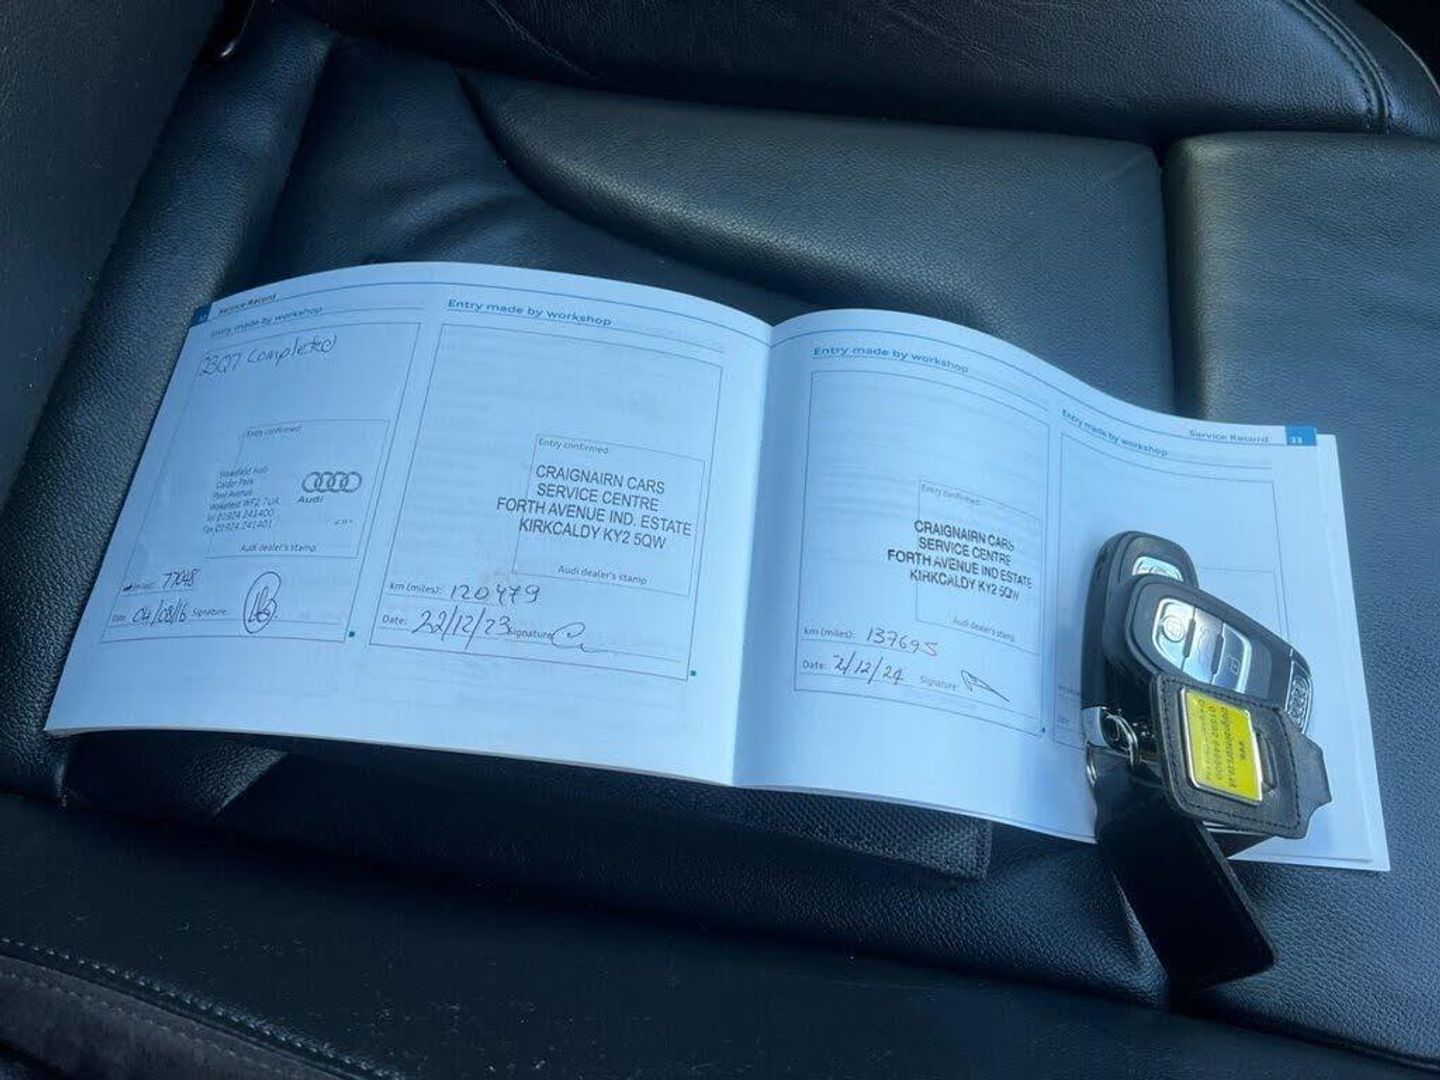 Service Record
Entry made by workshop
23Q7 Completed
Entry confirmed
Calder Park
Peel Avenue
Wakefield WF2 7UA
Tel 01924 241400
Fax 01924 241401
Audi
Audi dealer's stamp
77048
Date: 04/08/16 Signature:
Entry made by workshop
Entry confirmed
CRAIGNAIRN CARS
SERVICE CENTRE
FORTH AVENUE IND. ESTATE
KIRKCALDY KY2 5QW
Audi dealer's stamp
km (miles): 120479
Date: 22/12/23 Signature:
Entry made by workshop
Entry confirmed
CRAIGNAIRN CARS
SERVICE CENTRE
FORTH AVENUE IND ESTATE
KIRKCALDY KY2 5QW
Audi dealer's stamp
km (miles): 137695
Date: 2/12/24 Signature:
Service Record 33
Entry made by workshop